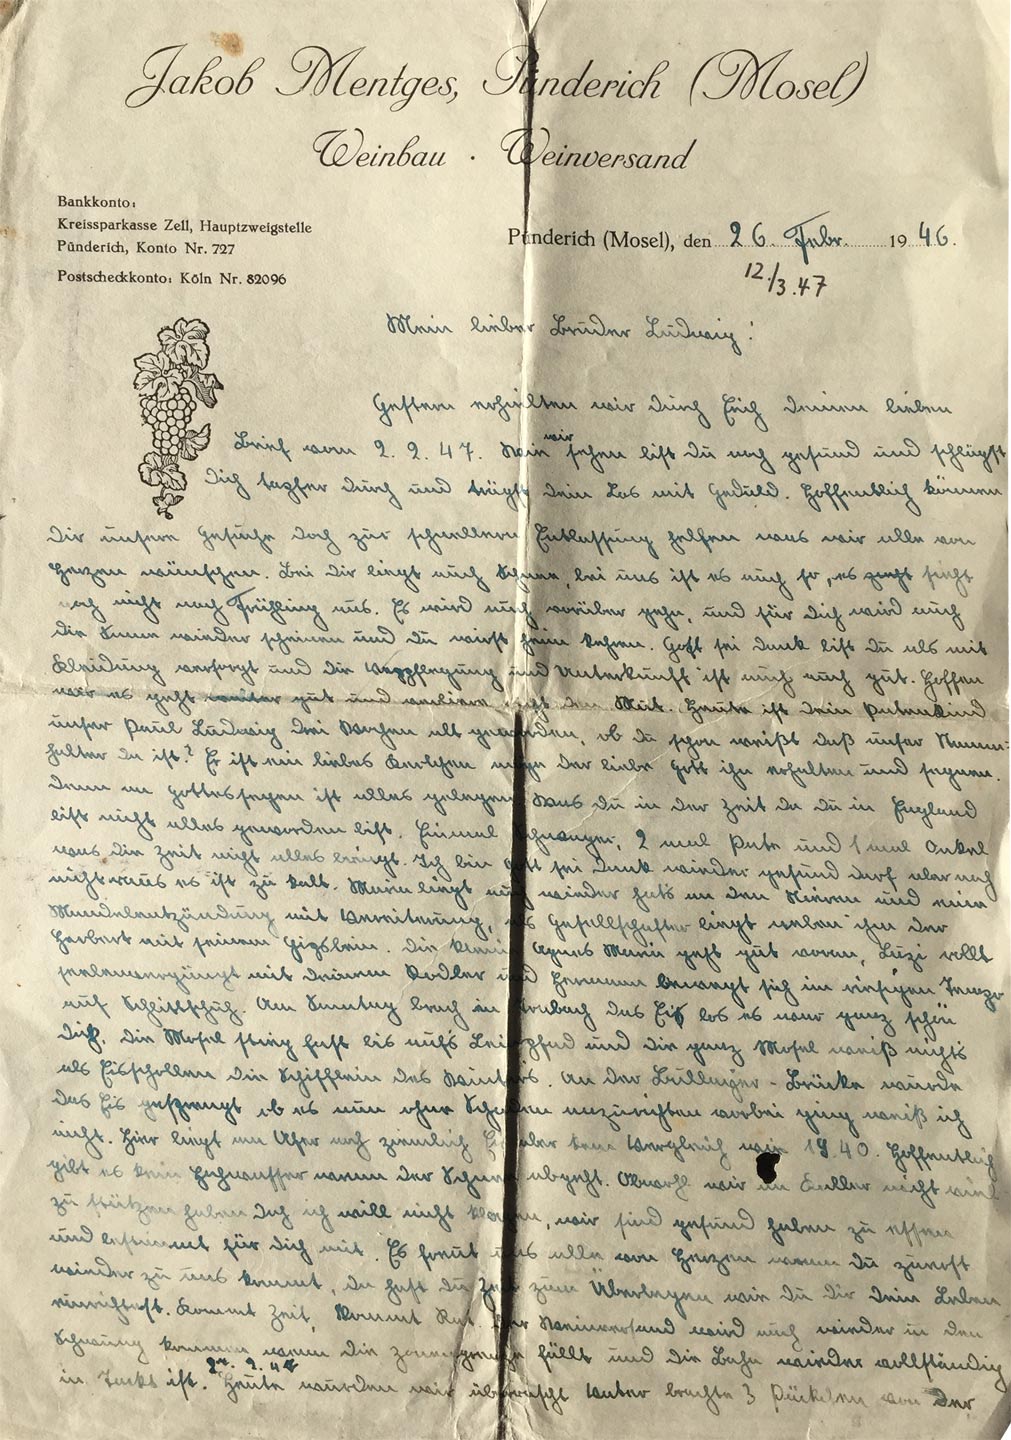 Jakob Mentges, Pünderich (Mosel)
Weinbau · Weinversand
Bankkonto:
Kreissparkasse Zell, Hauptzweigstelle
Pünderich, Konto Nr. 727
Postscheckkonto: Köln Nr. 82096
Pünderich (Mosel), den 26. Febr. 1946.
12./3.47
Mein lieber Bruder Ludwig!
Gestern erhielten wir durch Erich deinen lieben
Brief vom 2. 2. 47. Wie wir sehen bist du noch gesund und schlägst
dich tapfer durch und trägst dein Los mit Geduld. Hoffentlich können
dir unsere Gesuche doch zur schnellern Entlassung helfen was wir alle von
Herzen wünschen. Bei dir liegt auch Schnee, bei uns ist es auch so, es sieht
noch nicht nach Frühling aus. Es wird auch vorüber gehn, und für dich wird auch
die Sonne wieder scheinen und du wirst heim kehren. Gott sei dank bist du als mit
Kleidung versorgt und die Verpflegung und Unterkunft ist auch gut. Hoffen
wir es geht weiter gut und verliere nicht den Mut. Heute ist dein Patenkind
unser Paul Ludwig drei Wochen alt geworden, ob du schon weißt daß unser Stamm-
halter da ist? Er ist ein liebes Kerlchen möge der liebe Gott ihn erhalten und segnen.
Denn an Gottessegen ist alles gelegen. Was du in der Zeit da du in England
bist nicht alles geworden bist. Einmal Schwager, 2 mal Pate und 1 mal Onkel
was die Zeit nicht alles bringt. Ich bin Gott sei dank wieder gesund darf aber noch
nicht raus es ist zu kalt. liegt auch wieder hats an den Nieren und eine
Mandelentzündung mit Vereiterung, als Gesellschafter liegt neben ihm der
Herbert mit seinem. Die kleine Agnes Marie geht gut voran, Luzi rollt
seelenvergnügt mit deinem Rodler und Hermann bewegt sich im riesigen Tempo
auf Schlittschuh. Am Sonntag brach in Trabach das Eis los es war ganz schön
dick. Die Mosel stieg fast bis aufs Leinpfad und die ganz Mosel weiß nichts
als Eisschollen die Schifflein des Winters. An der Bullayer-Brücke wurde
das Eis gesprengt ob es nun ohne Schaden anzurichten vorbei ging weiß ich
nicht. Hier liegt am Ufer noch ziemlich Eis aber kein Vergleich wie 1940. Hoffentlich
gibt es kein Hochwasser wenn der Schnee abgeht. Obwohl wir im Keller nicht viel
zu stützen haben doch ich will nicht klagen, wir sind gesund haben zu essen
und bestimmt für dich mit. Es freut uns alle von Herzen wenn du zuerst
wieder zu uns kommst, da hast du Zeit zum Überlegen wie du dir dein Leben
einrichtest. Kommt Zeit, kommt Rat. Der Weinversand wird auch wieder in den
Schwung kommen wenn die Zonengrenze fällt und die Bahn wieder vollständig
in Takt ist. 27. 2. 47 Heute wurden wir überrascht Vater brachte 3 Päckchen von der